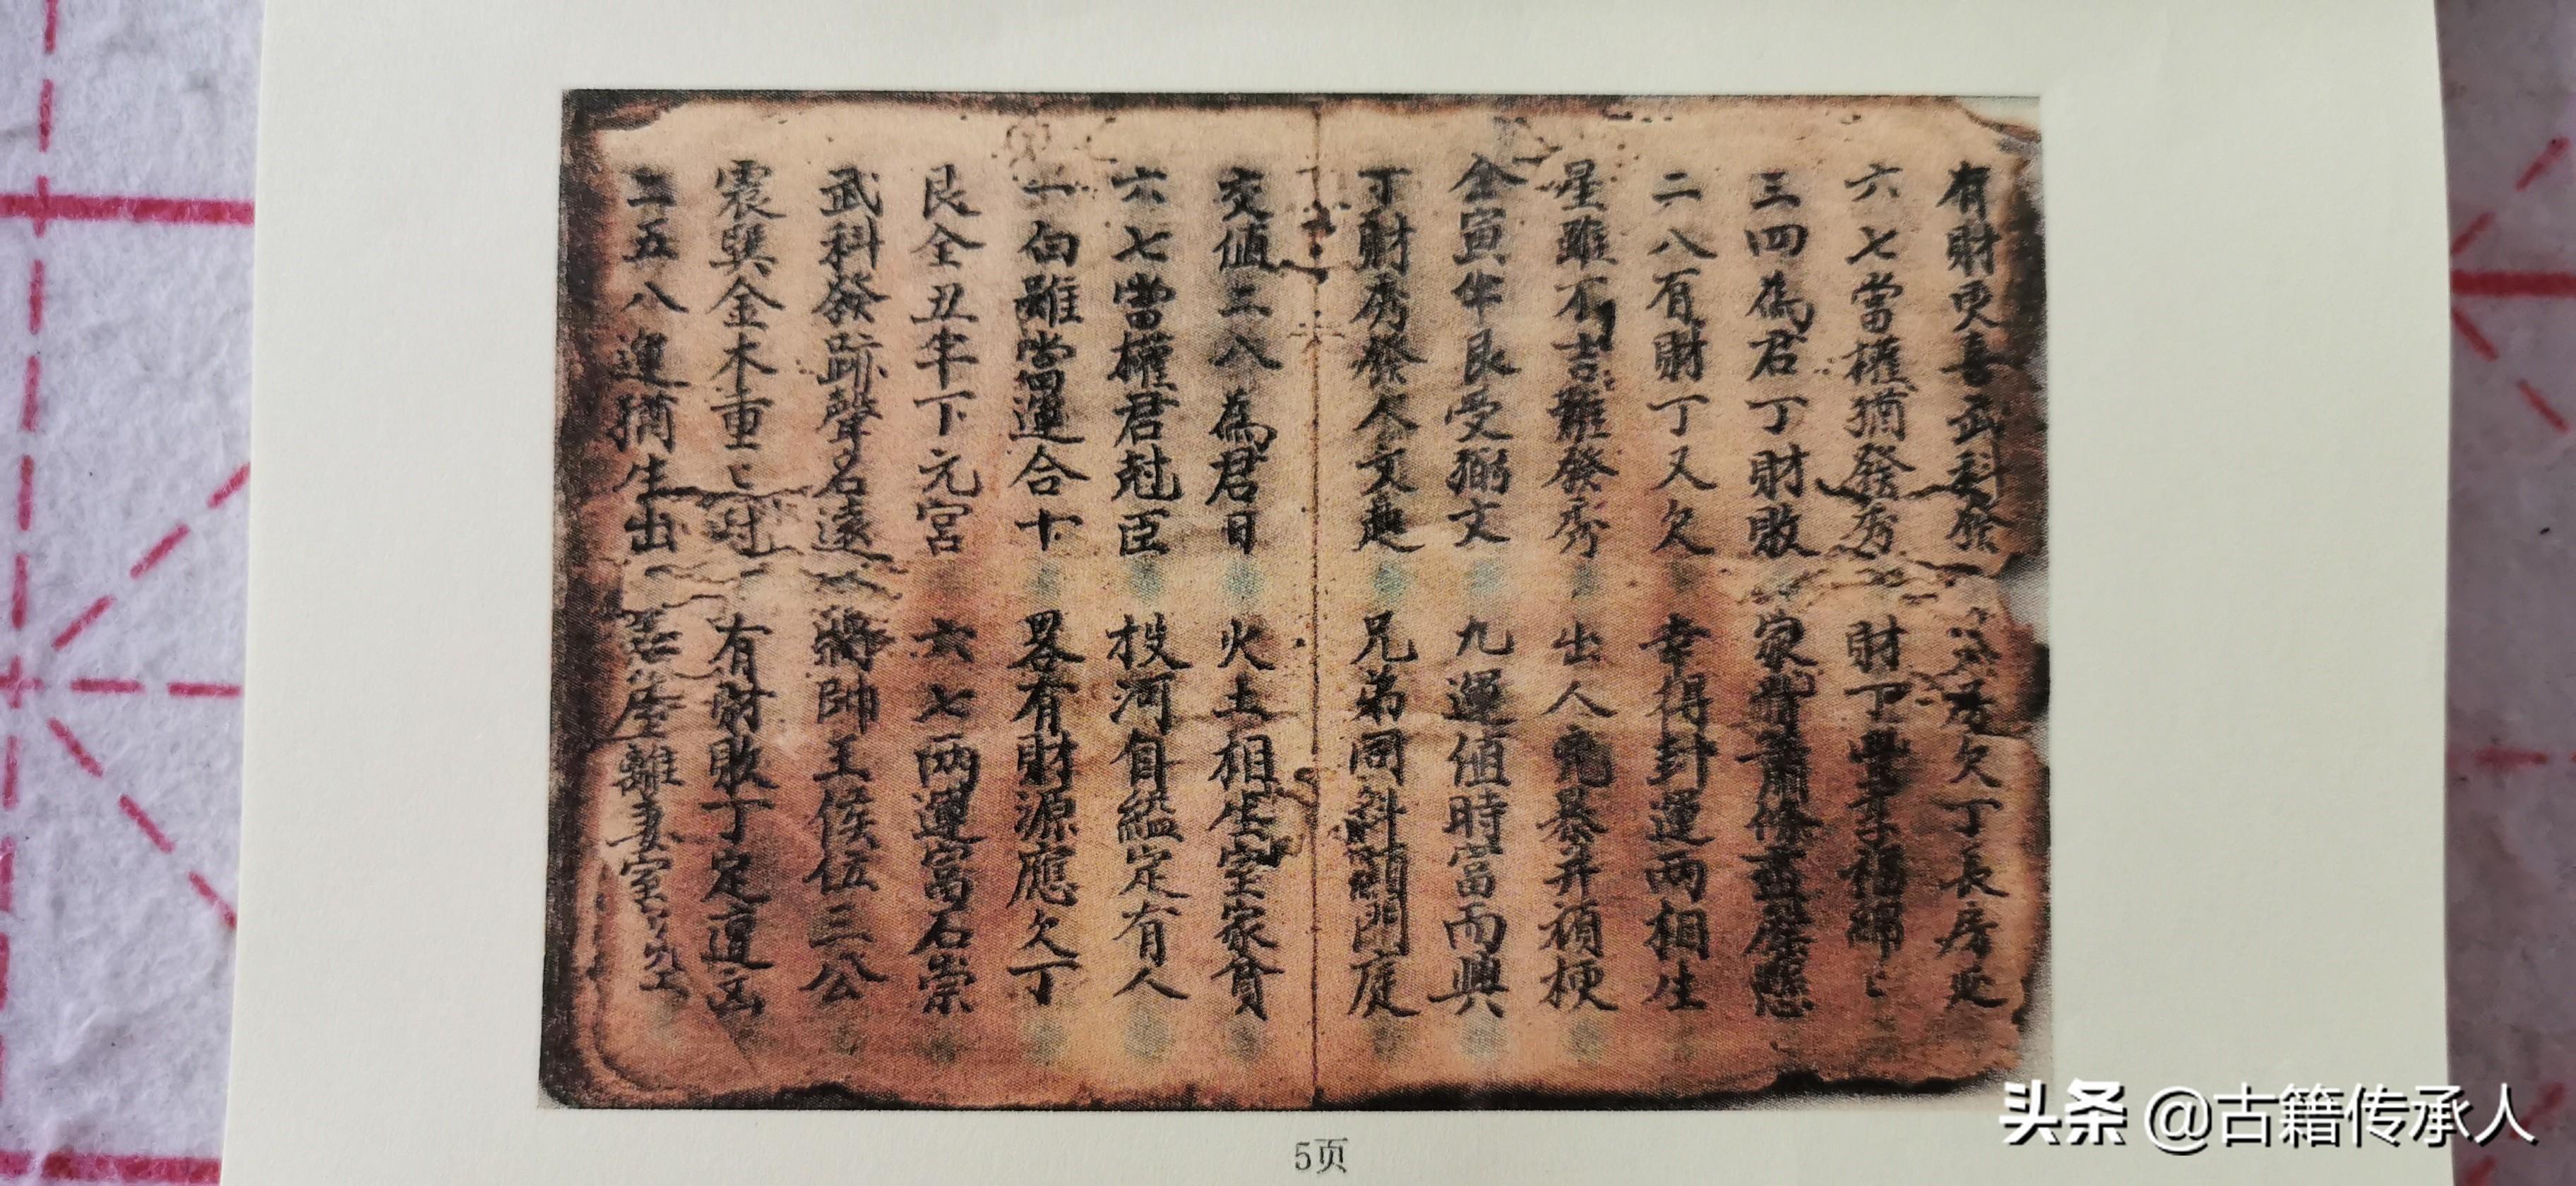 有財更喜武科發 房欠丁長房延
六七當權猶發秀 財丁與孝福綿〻
三四為君丁財敗 家業蕭條
二八有財丁又欠 幸得卦運兩相生
星雖不吉難發秀 出人兇暴并頑梗
全寅年艮受弼文 九運值時富而興
丁財秀發人文起 兄弟同科顯門庭
交值二八為君日 火土相生室家貧
六七當權君尅臣 投河自縊定有人
一白雖當運合十 畧有財源應欠丁
艮全丑年下元宮 六七兩運富石崇
武科發跡聲名遠 將帥王侯伍三公
震巽金木重〻尅 有財敗丁定遭凶
二五八運猶生出 離妻室
5页
头条 @古籍传承人